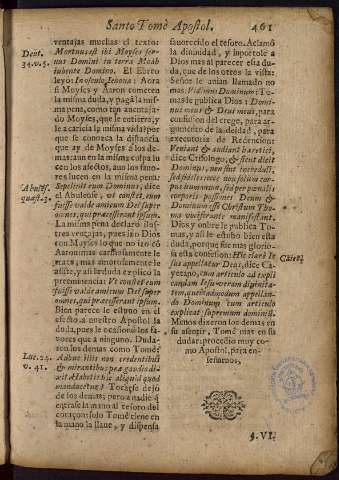 Santo Tomè Apostol. 461
ventajas muchas el texto:
Mortuus est ibi Moyses ser-
uus Domini in terra Moab
iubente Domino. El Ebreo
leyò: In osculo Iehoua: Aora
si Moyses y Aaron comeren
la misma duda, y pagã la mis-
ma pena, como tan auentaja-
do Moyses, que le entierra, y
le acaricia la misma vida? por
que se conozca la distancia
que ay de Moyses a los de-
mas: aun en la misma culpa lu
cen los afectos, aun los fauo-
res lucen en la misma pena:
Sepelinit eum Dominus, dice
el Abulense, vt constet, eum
fuisse valde amicum Dei super
omnes, qui præcesserant ipsum.
La misma pena declarò ilus-
tres ventajas, pues hizo Dios
con Moyses lo que no izo cõ
Aaron: mas cariñosamente le
trata, mas amorosamente le
asiste, y asi la duda explicò la
preeminencia: Vt constet eum
fuisse valde amicum Dei super
omnes, qui præcesserant ipsum.
Bien parece le estuuo en el
efecto a nuestro Apostol la
duda, pues le ocasionò los fa-
uores que a ninguno. Duda-
ron los demas como Tomè:
Adhuc illis non credentibus
& mirantibus præ gaudio di-
xit Habetis hic aliquid quod
manducetur? Tocase dejò
de los demas; pero a nadie q̃
entrase la mano al tesoro del
coraçon: solo Tomè tiene en
la mano la llaue, y dispensa
Deut.
34. v. 5.
Abulẽs.
quæst. 3.
Luc. 25.
v. 41.
fauorecido el tesoro. Aclamò
la diuinidad, y inputòle a
Dios mas al parecer esta du-
da, que de los otros la vista:
Señor le auian llamado no
mas: Vidimus Dominum: To-
mas le publica Dios: Domi-
nus meus, & Deus meus, para
confusion del erege, para ar-
gumento de la deidad, para
executoria de Redencion:
Veniant & audiant hæretici,
dice Crisologo, & sicut dicit
Dominus, non sint increduli,
sed fideles: ecce non solum cor-
pus humanum, sed per penalis
corporis passiones Deum &
Dominum esse Christum Tho-
ma vociferante manifestant.
Dios y onbre le publica To-
mas, y asi le estuuo bien esta
duda, porque fue mas glorio-
sa esta confesion: Hic clare le-
sus appellatur Deus, dice Ca-
yetano, cum articulo ad expli
candam Iesu veram diuinita-
tem, quemadmodum appellan-
do Dominum cum articulo
explicat supremum dominiũ.
Menos dixeron los demas en
su asentir, Tomè mas en su
dudar: procedio muy co-
mo Apostol, para en-
señarnos,
§. VI.